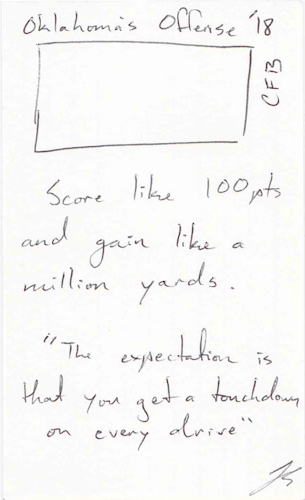 Oklahoma's Offense '18
CFB
Score like 100pts
and gain like a
million yards.
"The expectation is
that you get a touchdown
on every drive"